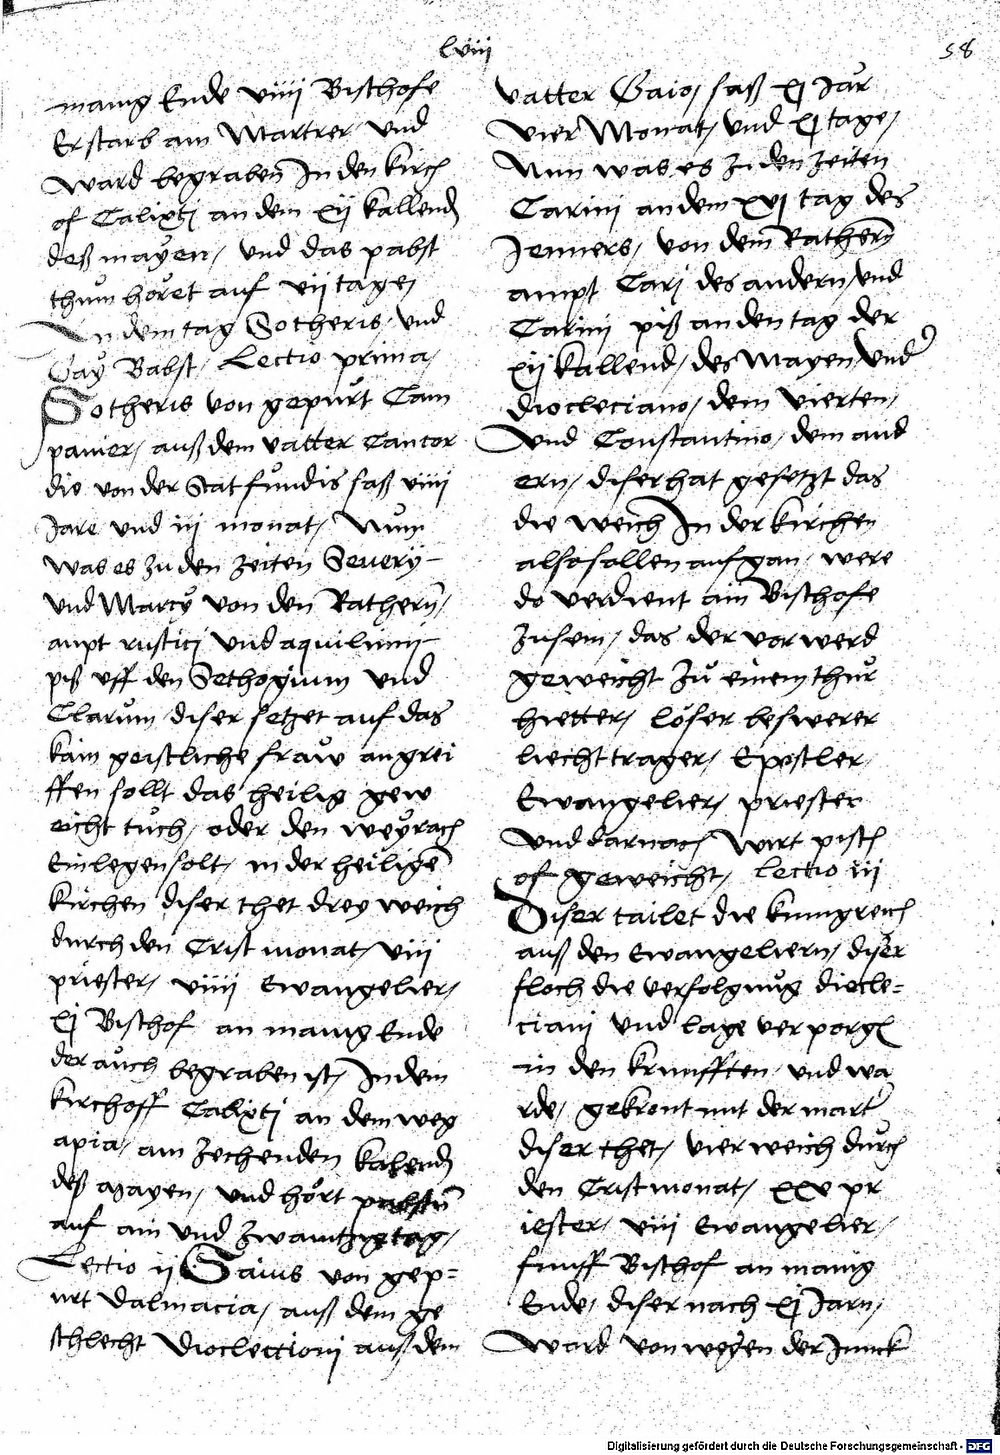 lviii
58
manig Ende viiii Bischofe
Er starb ain Martrer und
ward begraben In den kirch
of Calixti an dem xij kallend
deß mayen, und das pabst
thum höret auf vij tage,
In dem tag Sotheris, und
Gay Babst, Lectio prima,
Sotheris von gepurt Cam
panier, auß dem vatter Cancor
die von der Stat fundis saß viiii
Jare und iij monat, Nun
was es zu den zeiten Severy
und Marcy von den Rathern,
ampt rustici und aquilinni
piß uff den Sethogium und
Clarum diser setzet auf das
kain geistliche fraw angrei
ffen sollt das heilig gew
eicht tuch, oder den weyrach
Einlegen solt, in der heiligen
kirchen diser thet drey weich
durch den Crist monat, viii
priester, viiii Ewangelier,
xj Bischof an manig Ende
der auch begraben ist, In dem
kirchoff Calixti an dem weg
apia, am zechenden kalend
deß Mayen, und hört pabstū
auf ain und zwaintzig tag,
Lectio ij Gaius von gep=
urt Dalmacia, auß dem ge
schlecht Dioclectioni auß dem
vatter Gaio, saß xj Jar
vier Monat, und xj tage,
Nun was es zu den zeiten
Carini an dem xvj tag des
Jenners, von dem Rathern
ampt Cari des andern und
Carini piß an den tag der
xij kallend, des Mayen, under
diocleciano, dem vierten,
und Constantino, dem and
ern, diser hat gesetzt das
die weich In der kirchen
also sollen aufgan, were
do verdient ain Bischofe
zusein, das der vor werd
geweicht zu einem thur
hietter, löser beswerer
liecht trager, Epistler
Ewangelier, priester
und darnach wirt pisch
of geweicht, Lectio iii
Diser tailet die kunigreich
auß den Ewangeliern, diser
floch die verfolgnug diocle=
ciani und lage verporgē
in den krufften, und wa
rde, gekront mit der marter
diser thet, vier weich durch
den Crist monat, xxv pr
iester, viii Ewangelier,
funff Bischof an manig
Ende, diser nach xj Jarn,
ward von wegen der Junck
Digitalisierung gefördert durch die Deutsche Forschungsgemeinschaft - DFG